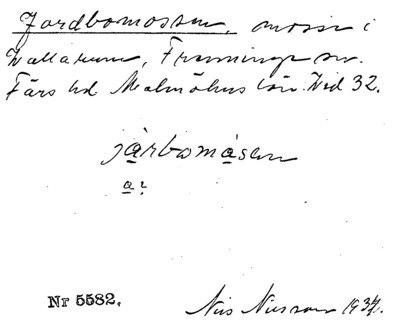 Jordbomossen, mosse i
Vallarum, Frenninge sn.
Färs hd Malmöhus län. Vid 32.
jarbomåsen
a:
Nr 5582.
Nils Nilsson 1934.